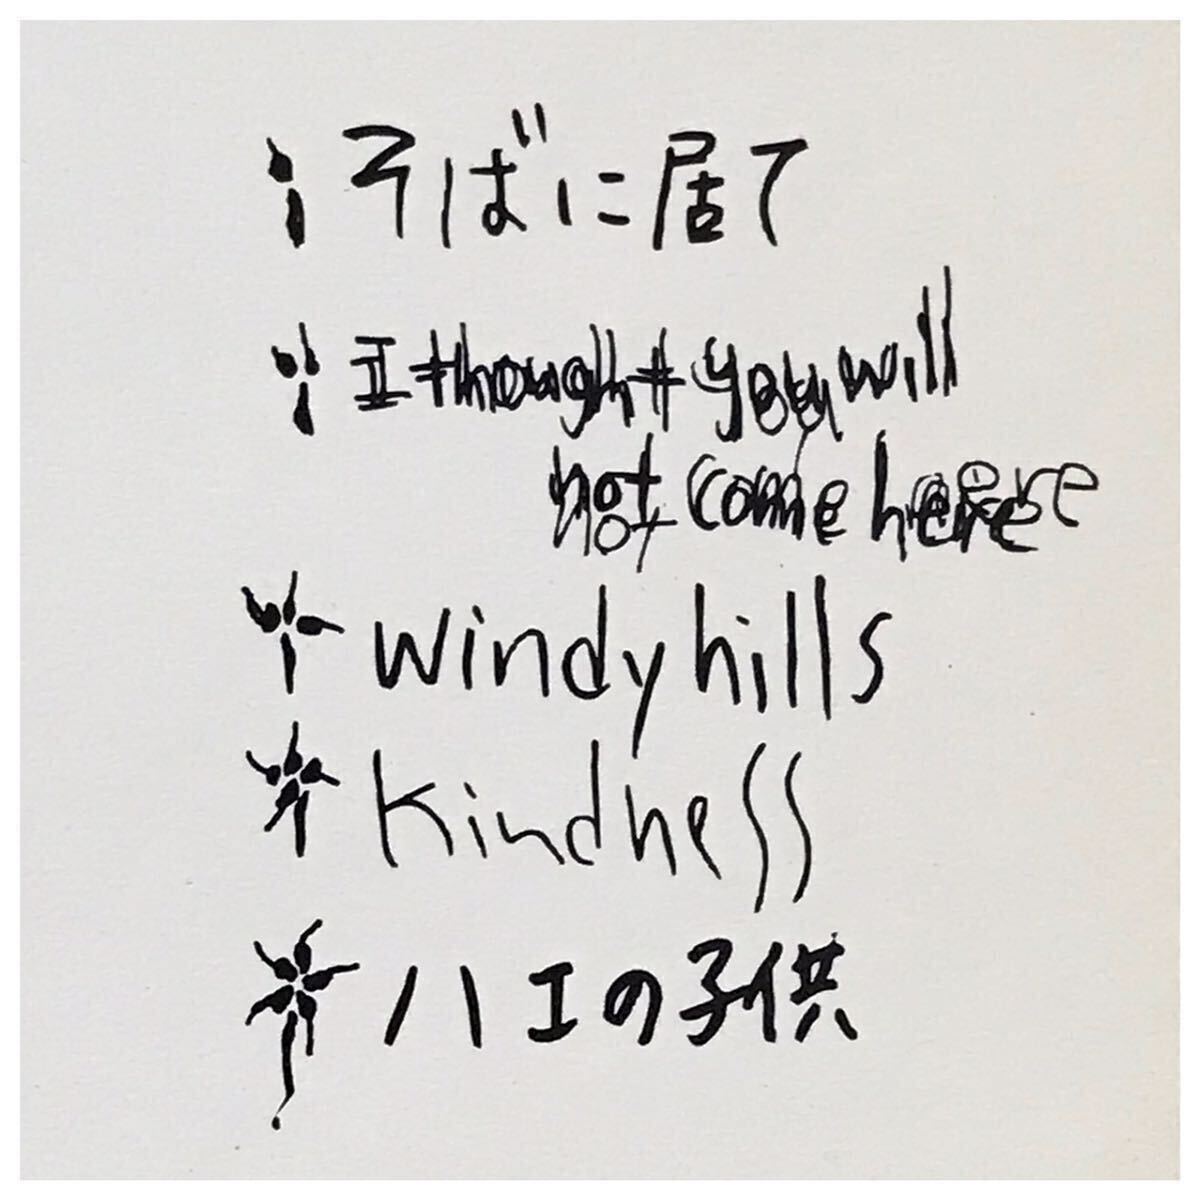 そばに居て
I thought you will
not come here
windy hills
kindness
ハエの子供